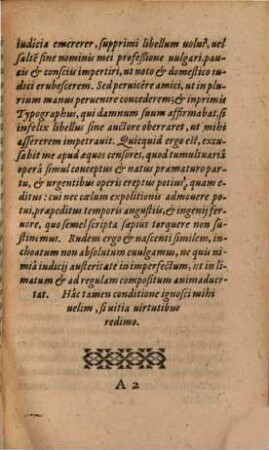 iudicia emererer, supprimi libellum uolui, uel
saltē sine nominis mei professione uulgari, pau-
cis & consciis impertiri, ut noto & domestico iu-
dici erubescerem. Sed peruicêre amici, ut in plu-
rium manus peruenire concederem; & inprimis
Typographus, qui damnum suum affirmabat, si
infelix libellus sine auctore oberraret, ut mihi
assererem impetrauit. Quicquid ergo est, excu-
sabit me apud æquos censores, quod tumultuariâ
operâ simul conceptus & natus præmaturo par-
tu, & urgentibus operis ereptus potius, quam e-
ditus: cui nec cœlum expolitionis admouere po-
tui, præpeditus temporis angustiis, & ingenij fer-
uore, quo semel scripta sæpius torquere non su-
stinemus. Rudem ergo & nascenti similem, in-
choatum non absolutum euulgamus, ne quis ni-
miâ iudicij austeritate in imperfectum, ut in li-
matum & ad regulam compositum animaduer-
tat. Hâc tamen conditione ignosci mihi
uelim, si uitia uirtutibus
redimo.
A 2